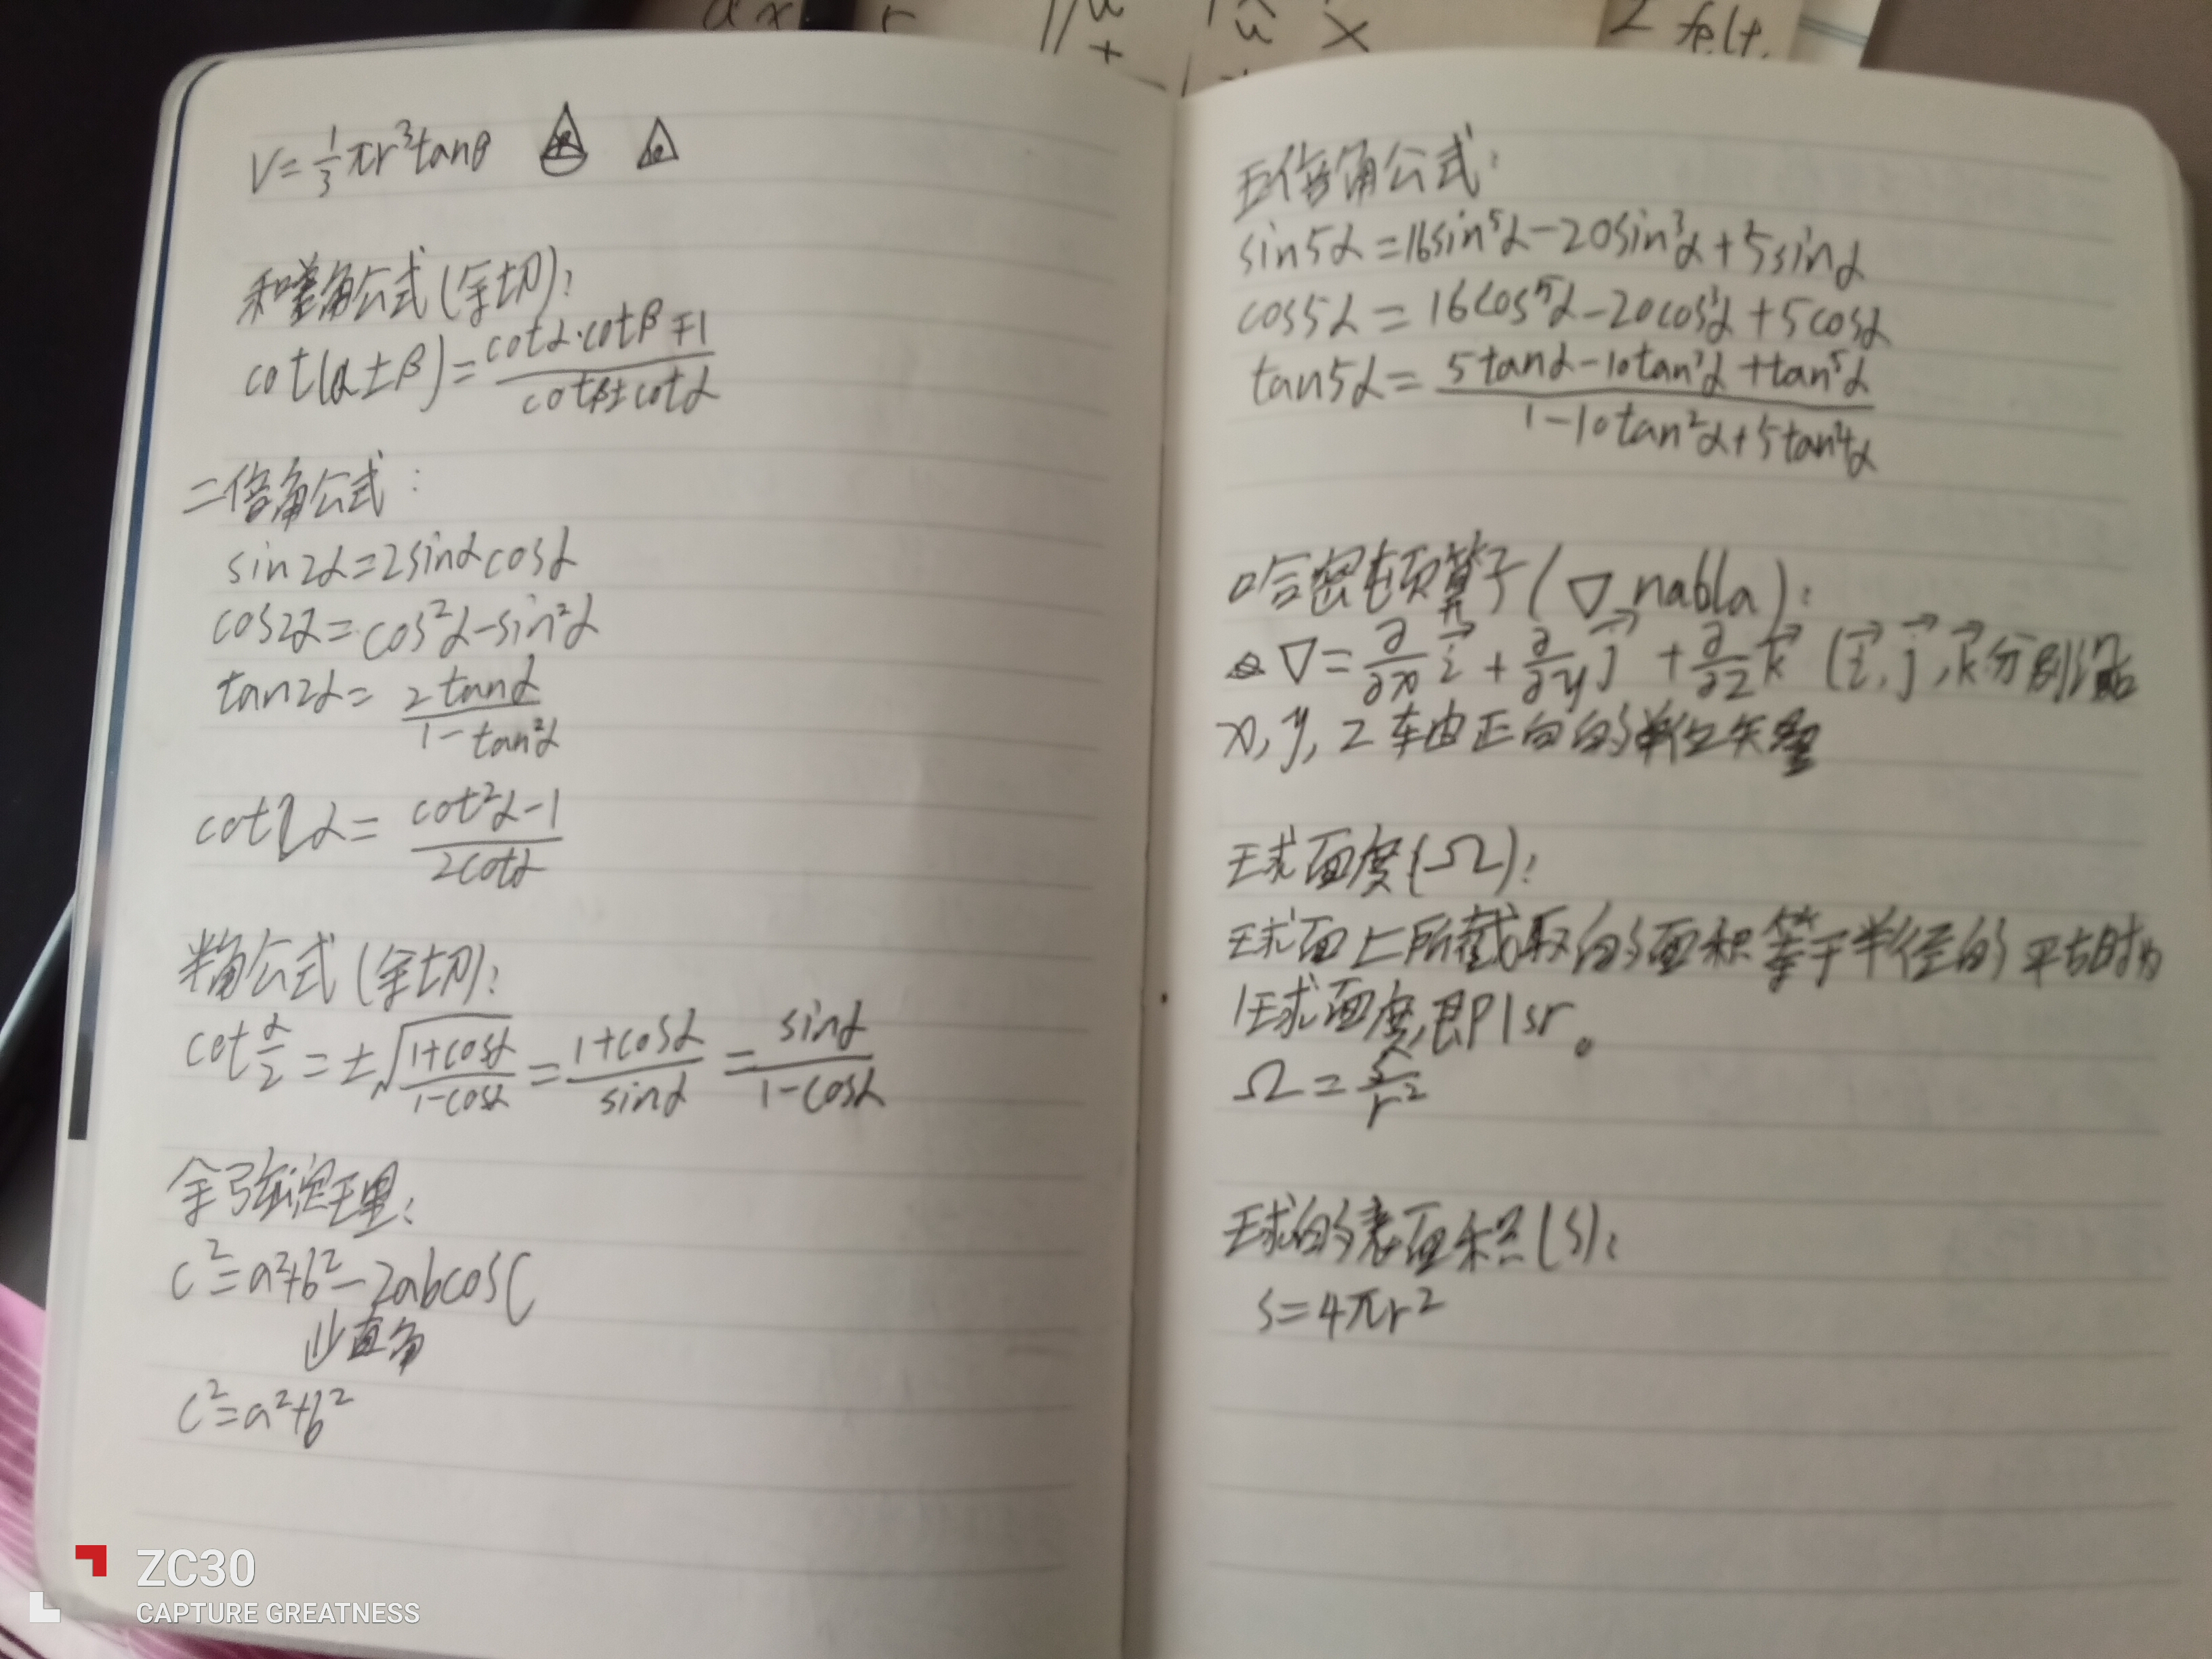 V=1/3πr³tanθ
和差角公式(余切):
cot(α±β)=(cotα·cotβ∓1)/(cotβ±cotα)
二倍角公式:
sin2α=2sinαcosα
cos2α=cos²α-sin²α
tan2α=2tanα/(1-tan²α)
cot2α=(cot²α-1)/(2cotα)
半角公式(余切):
cot α/2=±√((1+cosα)/(1-cosα))=(1+cosα)/sinα=sinα/(1-cosα)
余弦定理:
c²=a²+b²-2abcosC
⇓直角
c²=a²+b²
五倍角公式:
sin5α=16sin⁵α-20sin³α+5sinα
cos5α=16cos⁵α-20cos³α+5cosα
tan5α=(5tanα-10tan³α+tan⁵α)/(1-10tan²α+5tan⁴α)
哈密顿算子(∇ nabla):
∇=∂/∂x i⃗+∂/∂y j⃗+∂/∂z k⃗ (i⃗,j⃗,k⃗分别沿
x,y,z轴正向的单位矢量
球面度(Ω):
球面上所截取的面积等于半径的平方时为
1球面度,即1sr。
Ω=S/r²
球的表面积(S):
S=4πr²
ZC30
CAPTURE GREATNESS